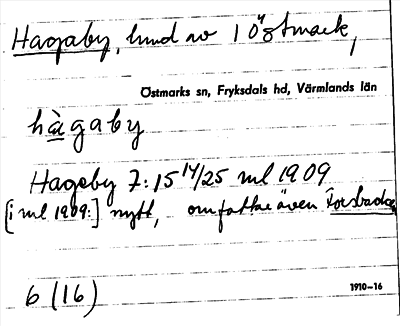 Hagaby, hmd av 1 Östmark,
Östmarks sn, Fryksdals hd, Värmlands län
hàgaby
Hagaby 7:15 14/25 ml 1909
[i ml 1909:] nytt, omfattar även Forsbacka
6 (16)
1910–16